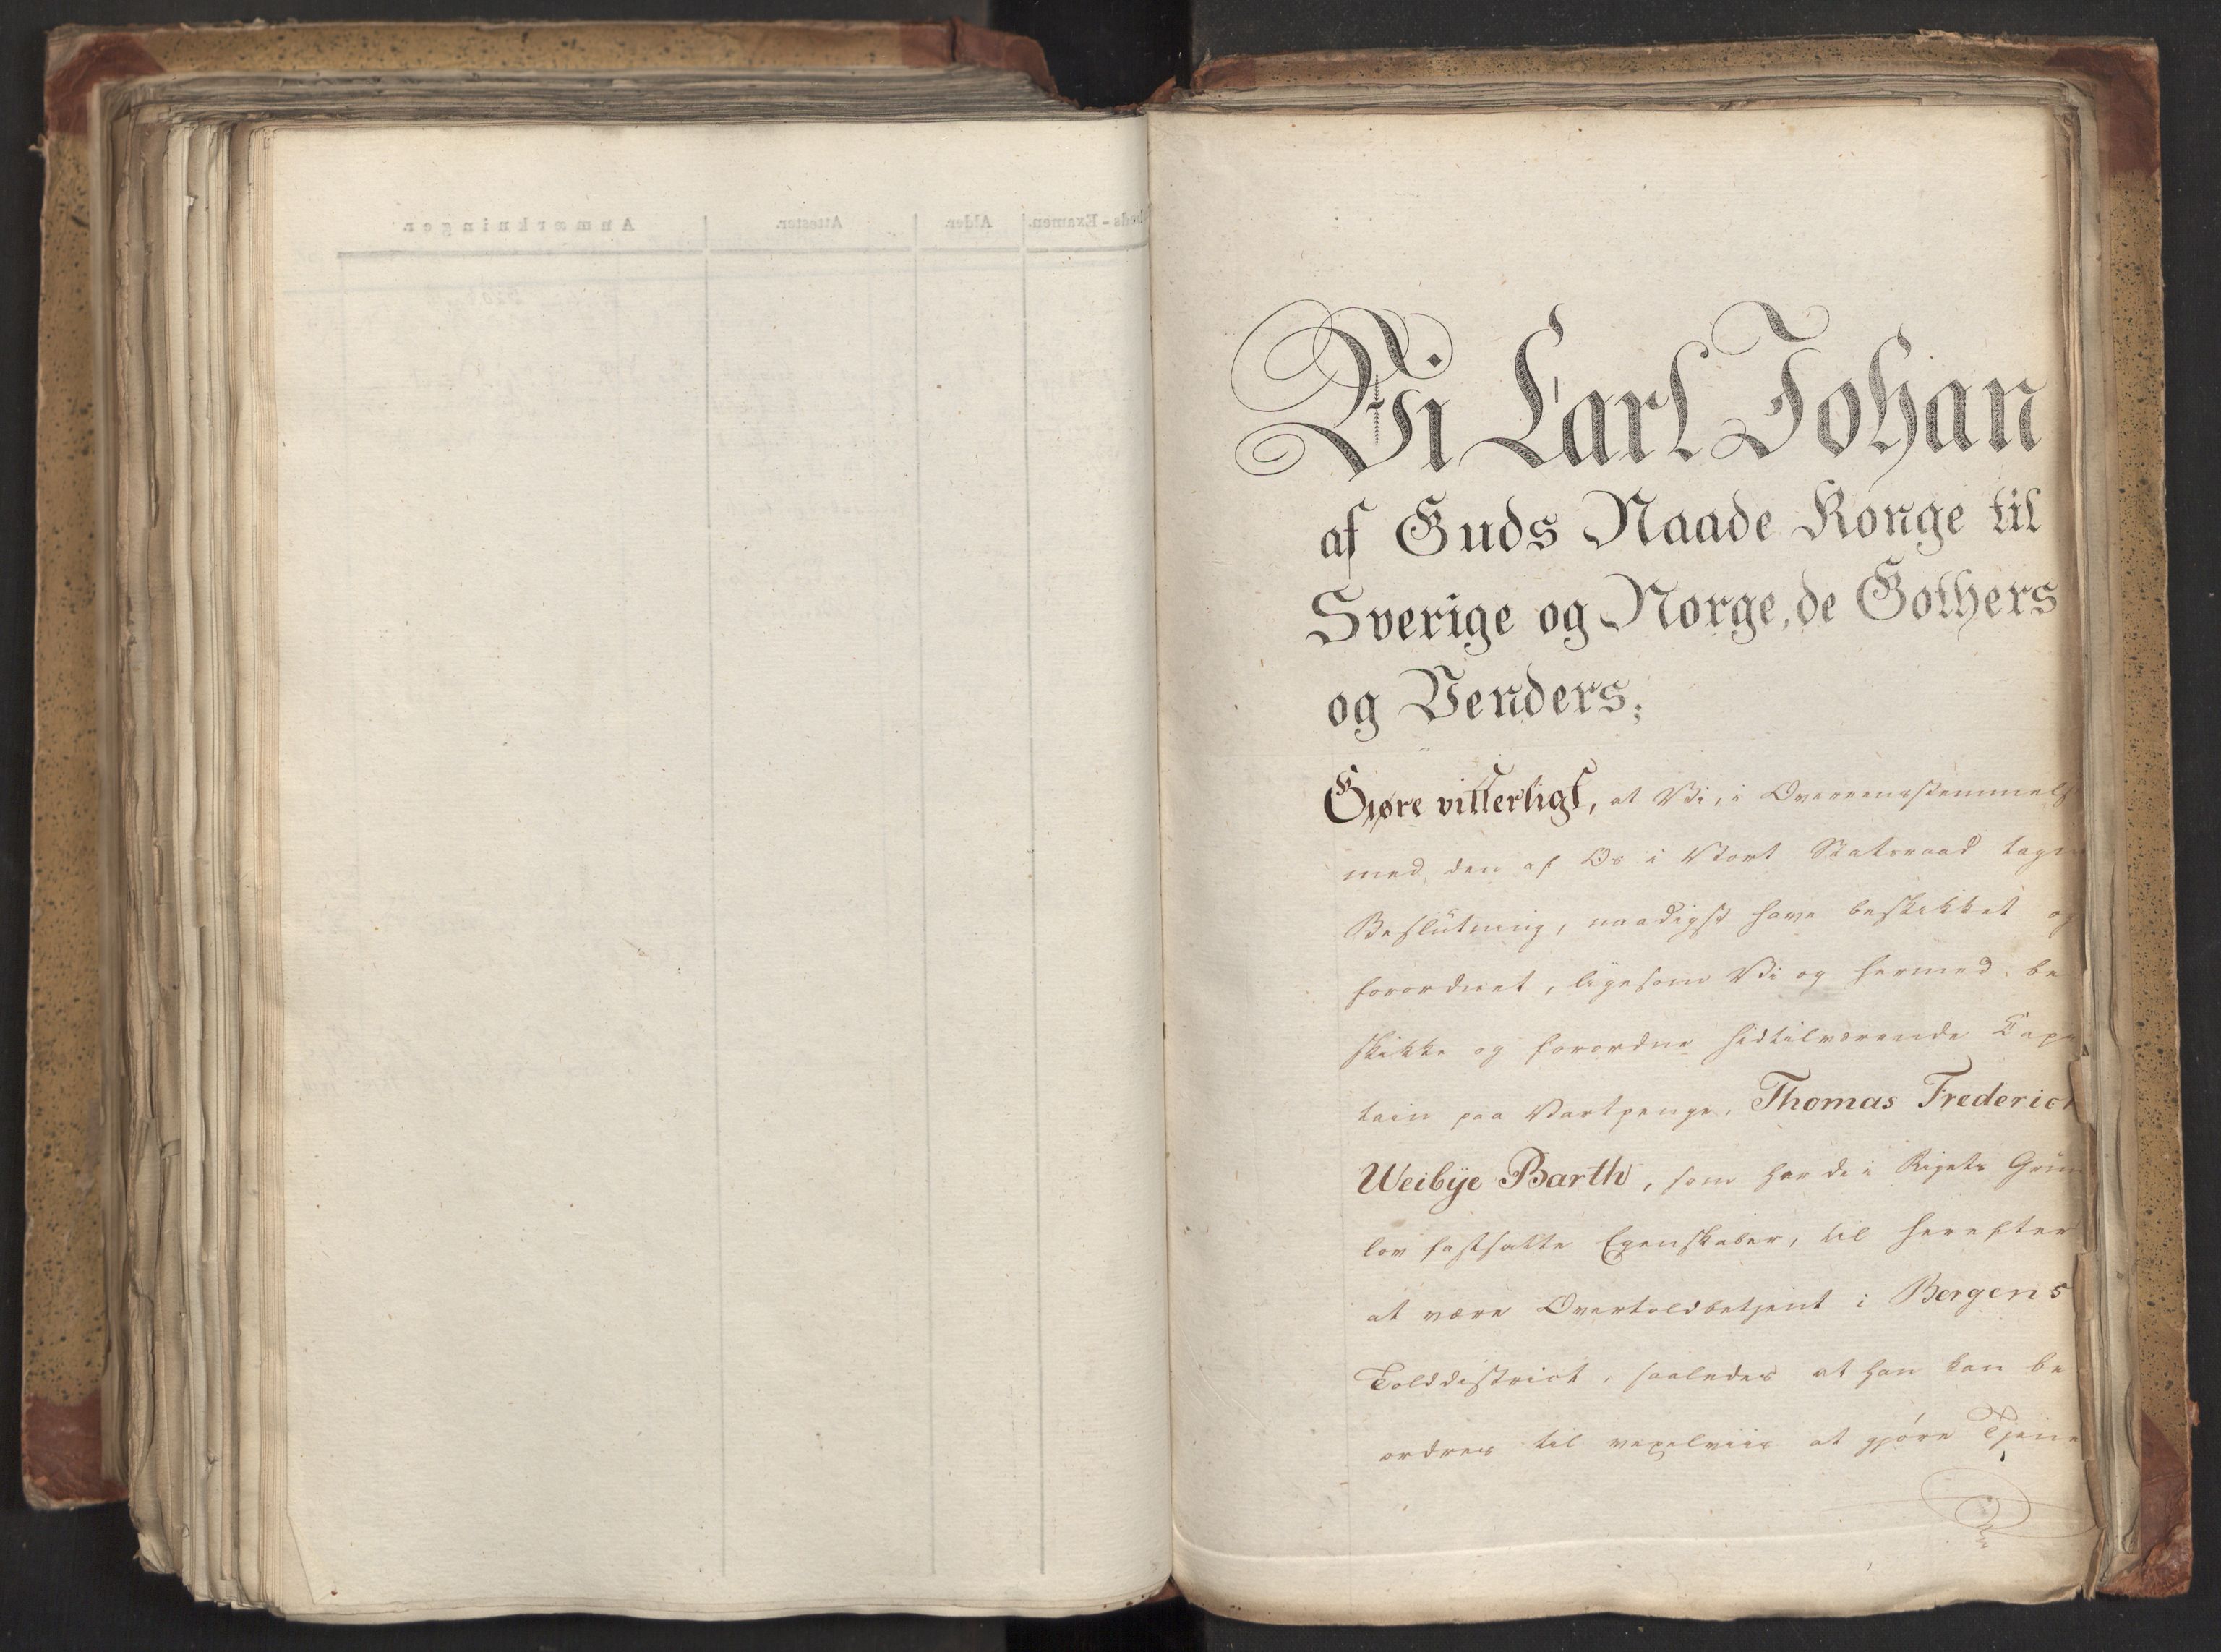 Vi Carl Johan
af Guds Naade Konge til
Sverige og Norge, de Gothers
og Venders;
Gjøre vitterligt, at Vi, i Overeenstemmelse
med den af Os i Vort Statsraad tagne
Beslütning, naadigst have beskikket og
forordnet, ligesom Vi og hermed be
skikke og forordne hidtilværende Capi
tain paa Vartpenge, Thomas Frederich
Weibÿe Barth, som har de i Rigets Grün
lov fastsatte Egenskaber, til herefter
at være Overtoldbetjent i Bergens
Tolddistrict, saaledes at han kan be
ordres til vexelviis at gjöre Tjene